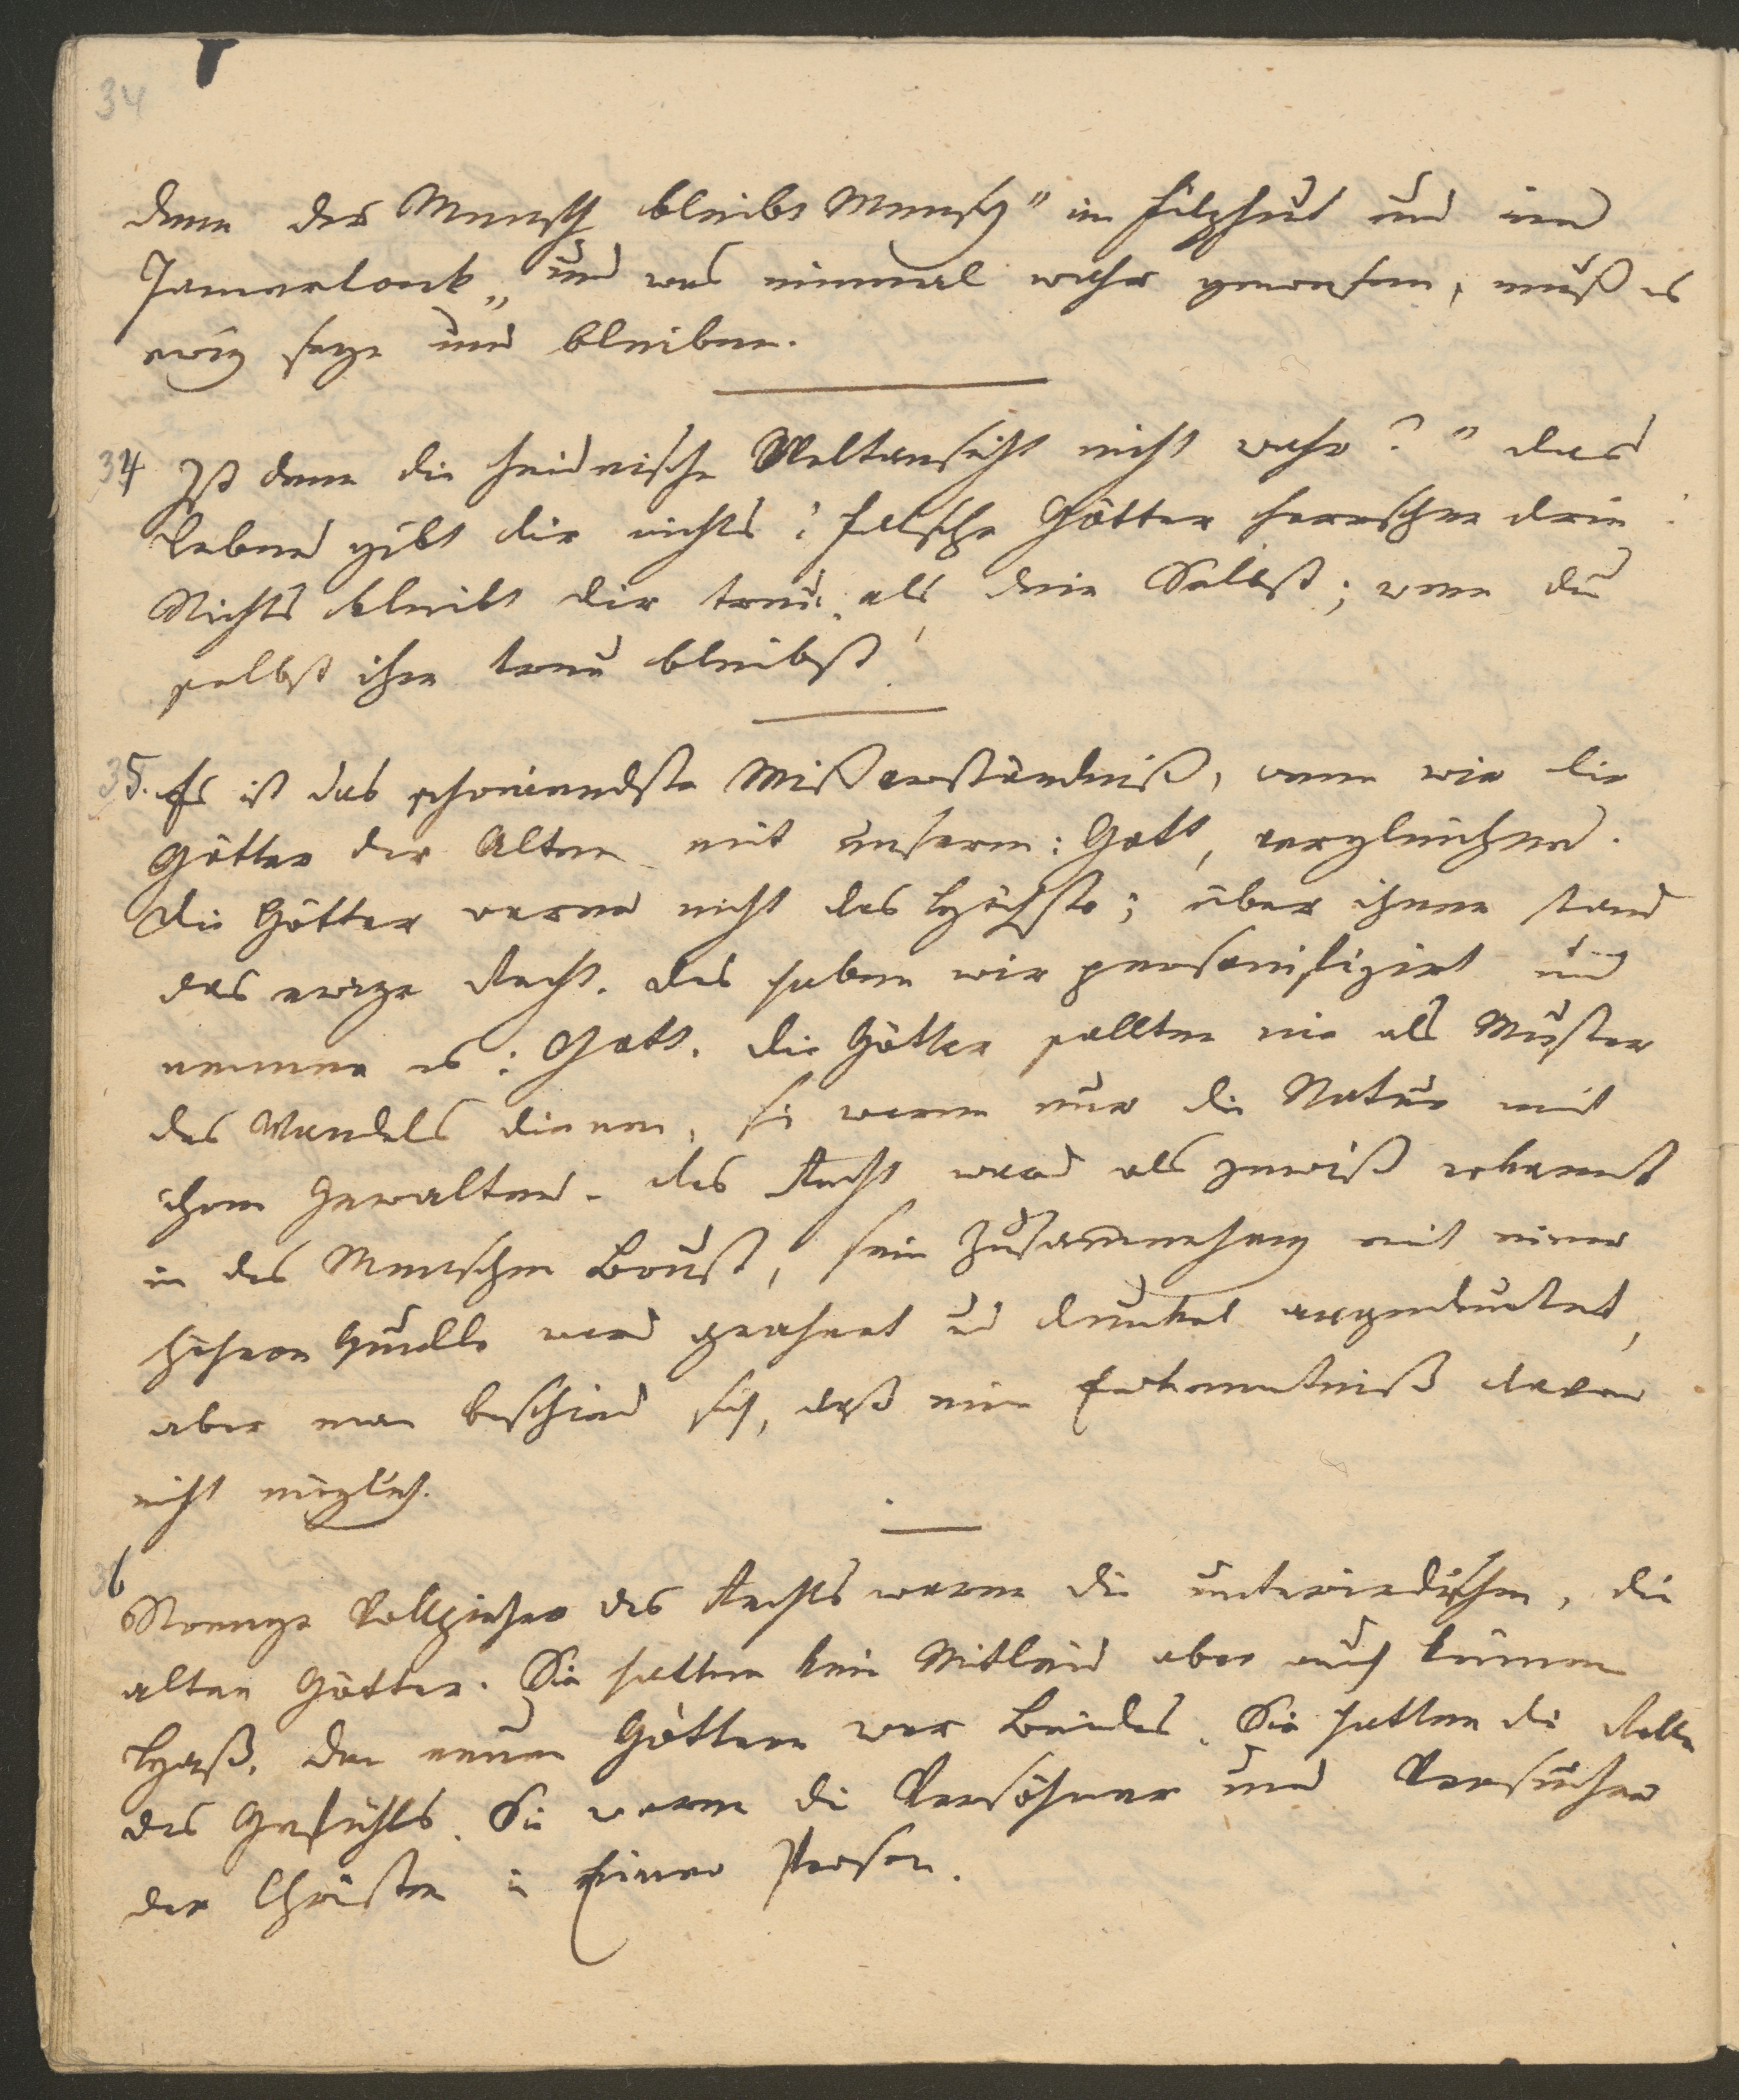 34
denn der Mensch bleibt Mensch" im Filzhut und im
Jamerlonk„ und was einmal wahr gewesen, muß es
ewig seyn und bleiben.
34 Ist denn die heidnische Weltansicht nicht wahr? " das
Leben gibt dir nichts; falsche Götter herrschen drin:
Nichts bleibt dir treu, als dein Selbst; wenn du
selbst ihm treu bleibst!
35. Es ist das schreiendste Mißverständniß, wenn wir die
Götter der Alten mit unserm: Gott, vergleichen.
Die Götter waren nicht das Höchste; über ihnen stand
das ewige Recht. Das haben wir personifizirt und
nennen es: Gott. Die Götter sollten nie als Muster
des Wandels dienen, sie waren nur die Natur mit
ihren Gewalten. Das Recht ward als gewiß erkannt
in des Menschen Brust, sein Zusammenhang mit einer
höhern Quelle ward geahnet und dunkel angedeutet,
aber man beschied sich, daß eine Erkenntniß davon
nicht möglich.
36
Strenge Vollzieher des Rechts waren die unterirdischen, die
alten Götter. Sie hatten kein Mitleid aber auch keinen
Haß. Den neuen Göttern war Beides. Sie hatten die Rolle
des Gefühls. Sie waren die Versöhner und Versucher
der Christen in Einer Person.